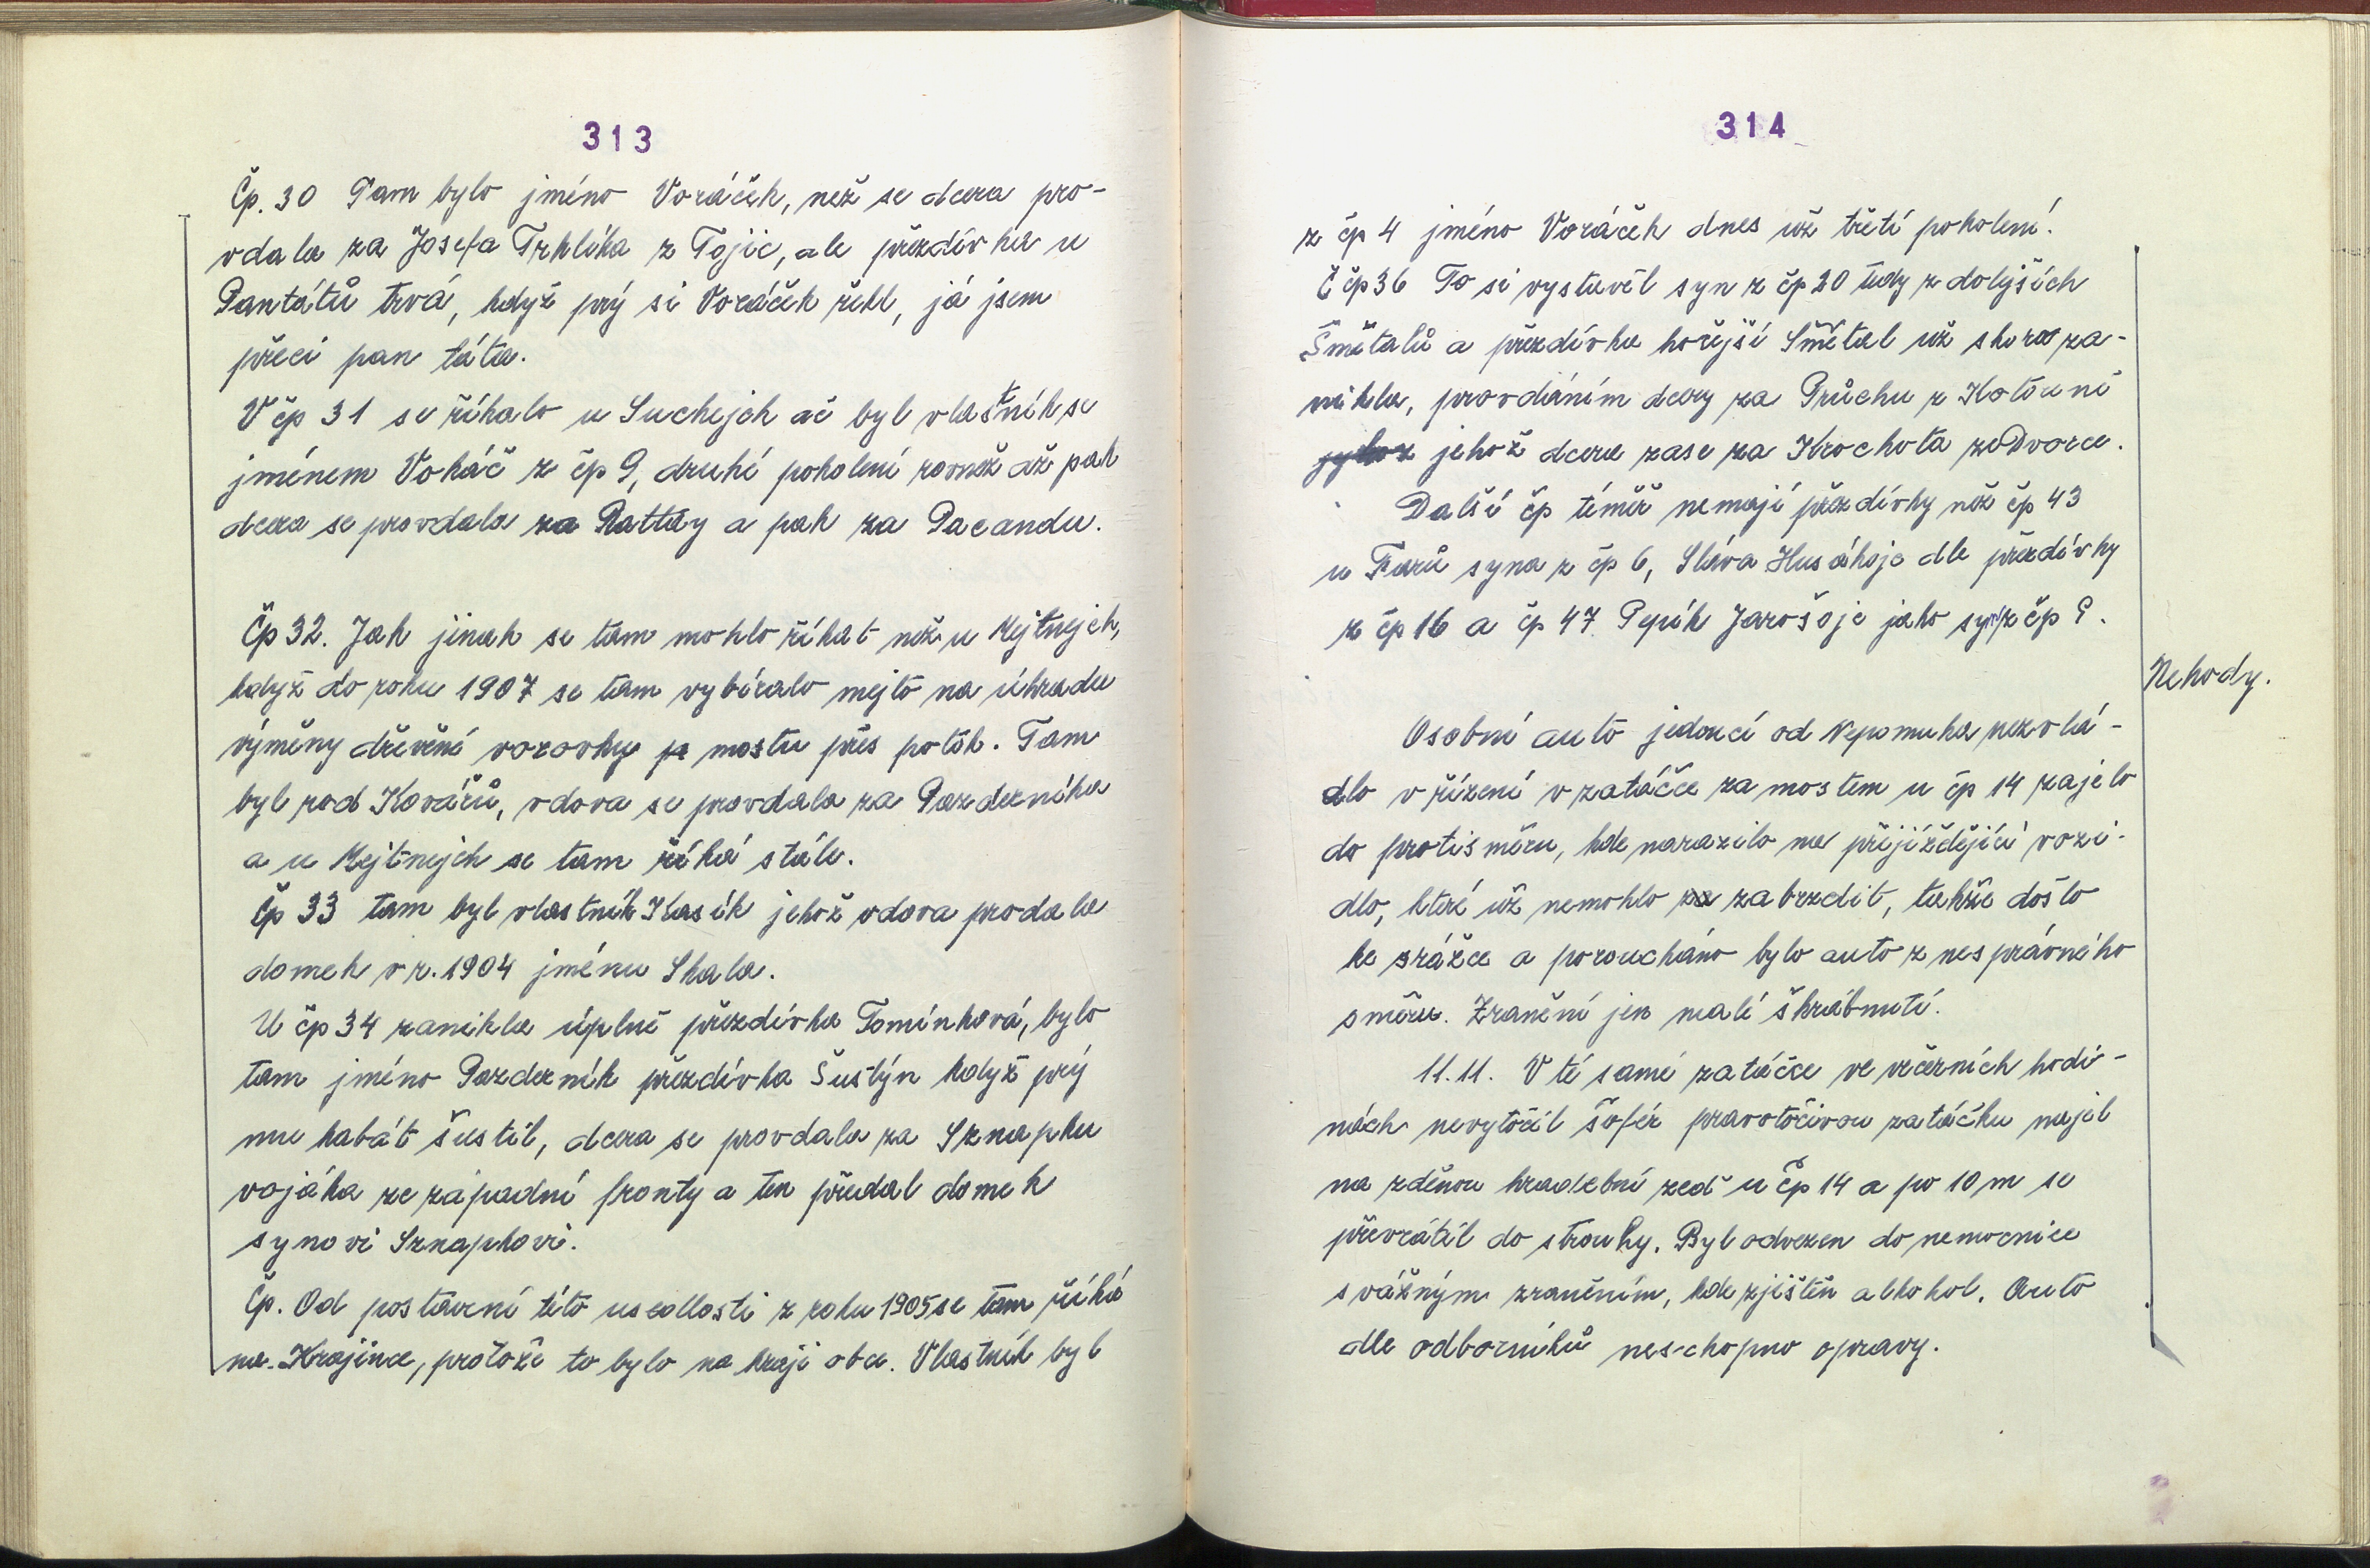 313
Čp. 30 Tam bylo jméno Voráček, než se dcera pro-
vdala za Josefa Trhlíka z Tojic, ale přezdívka u
Pantátů trvá, když prý si Voráček řekl, já jsem
přeci pan táta.
V čp 31 se říkalo u Suchejch ač byl vlastník se
jménem Vokáč z čp 9, druhé pokolení rovněž až pak
dcera se provdala za Rattay a pak za Pacandu.
Čp 32. Jak jinak se tam mohlo říkat než u Mejtnejch,
když do roku 1907 se tam vybíralo mejto na úhradu
výměny dřevěné vozovky mostu přes potok. Tam
byl rod Kovářů, vdova se provdala za Pazderníka
a u Mejtnejch se tam říká stále.
Čp 33 tam byl vlastník Kasík jehož vdova prodala
domek v r. 1904 jménu Skala.
U čp 34 zanikla úplně přezdívka Tomínková, bylo
tam jméno Pazderník přezdívka Šustýn když prý
mu kabát šustil, dcera se provdala za Sznapku
vojáka ze západní fronty a ten předal domek
synovi Sznapkovi.
Čp. Od postavení této usedlosti z roku 1905 se tam říká
na Krajince, protože to bylo na kraji obce. Vlastník byl
314
z čp 4 jméno Voráček dnes už třetí pokolení.
Č čp 36 To si vystavěl syn z čp 20 tedy z dolejších
Šmětalů a přezdívka hořejší Smětal už skoro za-
nikla, provdáním dcery za Průchu z Kotouně
jehož dcera zase za Krochota ze Dvorce.
Další čp téměř nemají přezdívky než čp 43
u Farů syna z čp 6, Sláva Husákoje dle přezdívky
z čp 16 a čp 47 Pepík Jarošoje jako syn z čp 9.
Nehody.
Osobní auto jedoucí od Nepomuka nezvlá-
dlo v řízení v zatáčce za mostem u čp 14 zajelo
do protisměru, kde narazilo na přijíždějící vozi-
dlo, které už nemohlo zabrzdit, takže došlo
ke srážce a porouchano bylo auto z nesprávného
směru. Zranění jen malé škrábnutí.
11.11. V té samé zatáčce ve večerních hodi-
nách nevytočil šofér pravotočivou zatáčku najel
na zděnou hradební zeď u čp 14 a po 10 m se
převrátil do strouhy. Byl odvezen do nemocnice
s vážným zraněním, kde zjištěn alkohol. Auto
dle odborníků neschopno opravy.